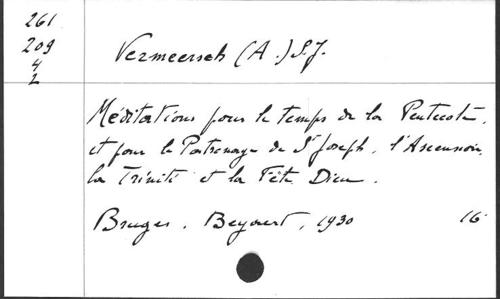 261
209
4
2
Vermeersch (A.) S.J.
Méditations pour le temps de la Pentecôte,
et pour le Patronage de St Joseph, l'Ascension,
la Trinité et la Fête Dieu.
Bruges, Beyaert, 1930 16